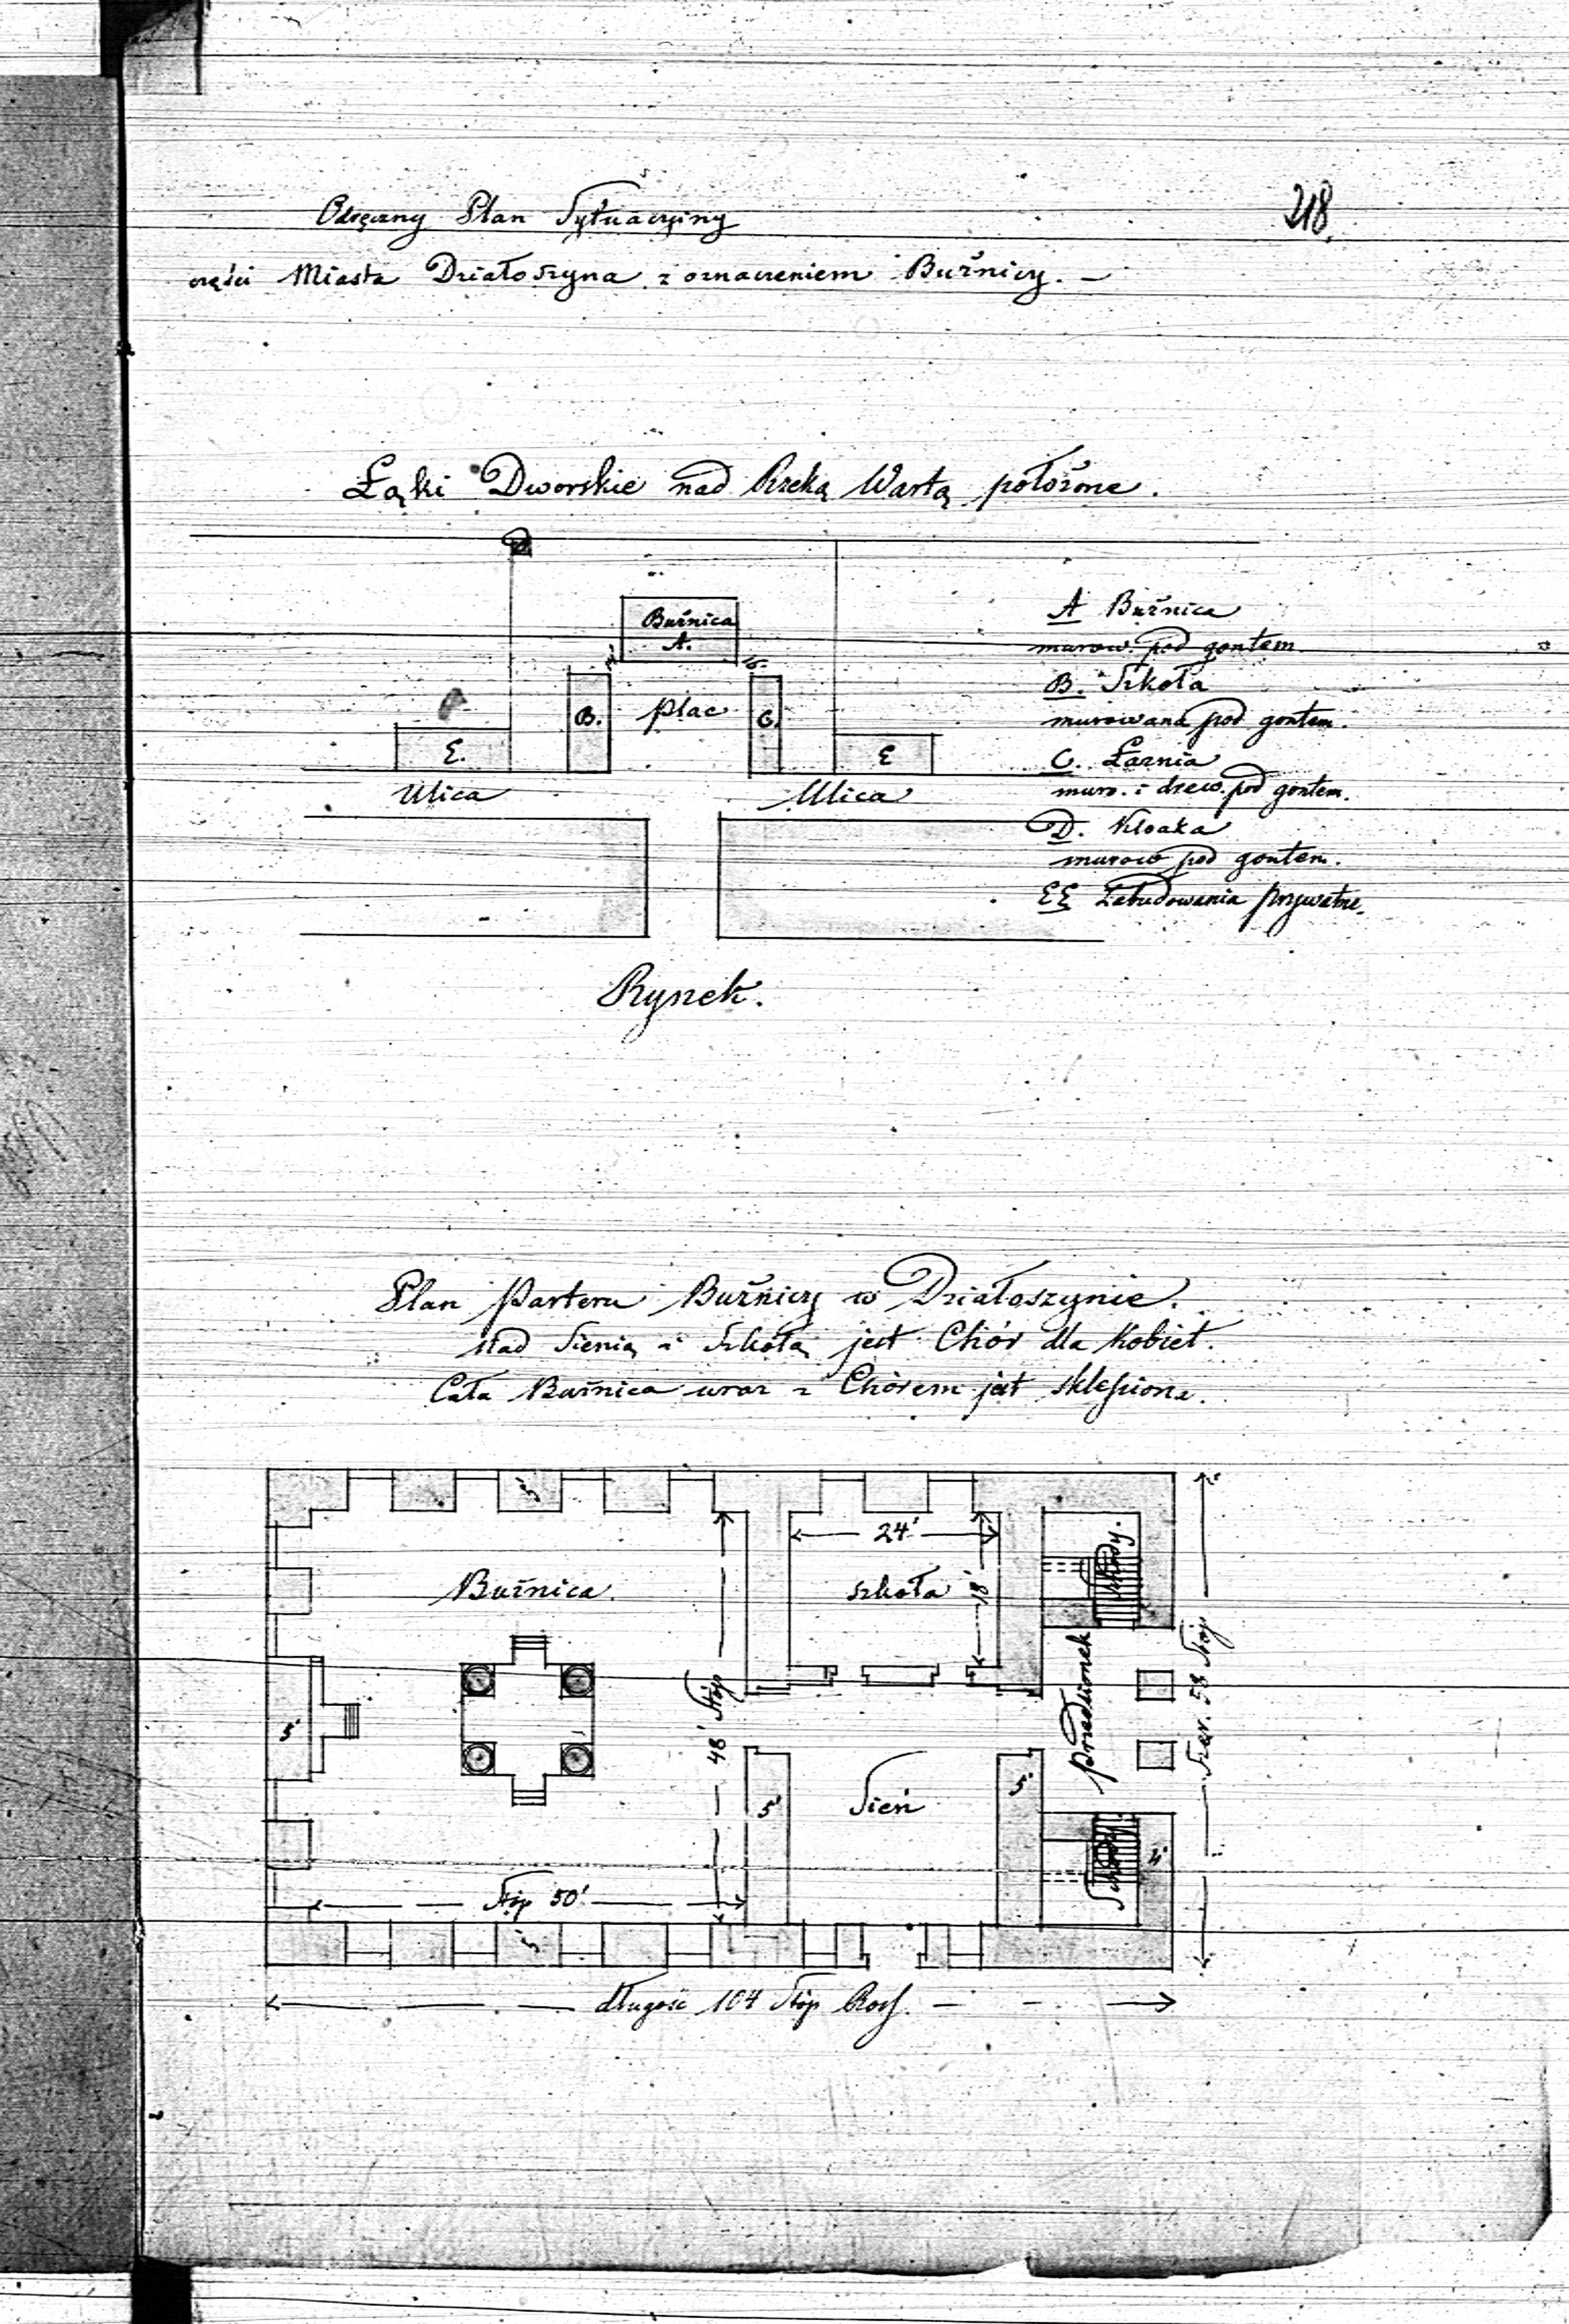 218.
Odręczny Plan Sytuacyjny
części Miasta Działoszyna z oznaczeniem Bużnicy. —
Łąki Dworskie nad Rzeką Wartą położone.
D
Bużnica
A.
B.
Plac
C.
E.
E
Ulica
Ulica
Rynek.
A Bużnica
murow. pod gontem
B. Szkoła
murowana pod gontem.
C. Łaznia
muro. i drew. pod gontem.
D. Kloaka
murow pod gontem.
EE Zabudowania prywatne.
Plan Parteru Bużnicy w Działoszynie.
Nad Sienią i Szkołą jest Chór dla Kobiet.
Cała Bużnica wraz z Chórem jest sklepiona.
5'
24'
Bużnica.
szkoła
18'
Schody.
5'
48' Stóp
przedsionek
Szer. 58 Stóp
5'
Sień
5'
Schody
4'
Stóp 50'
5'
długość 104 Stóp Ross.